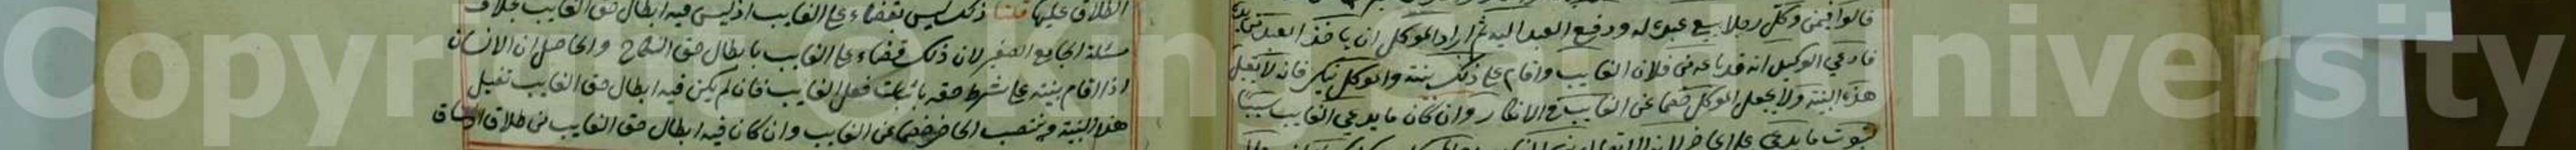 قالوا فيمن وكل رجلا ببيع عبده له ودفع العبد اليه ثم اراد الموكل ان ياخذ العبد
فادعى الوكيل انه قد باعه من فلان الغايب واقام على ذلك بينة والموكل ينكر فانه لا يقبل
هذه البينة ولا يجعل الموكل خصما عن الغايب في الانكار وان كان ما يدعي الغايب سببا
لثبوت ما يدعي على الحاضر
الطلاق عليها قلنا ذلك ليس بقضاء على الغايب اذ ليس فيه ابطال حق الغايب بخلاف
مسئلة الجامع الصغير لان ذلك قضاء على الغايب بابطال حق النكاح والحاصل ان الانسان
اذا اقام بينة على شرط حقه باثبات فعل الغايب فان لم يكن فيه ابطال حق الغايب تقبل
هذه البينة وينتصب الحاضر خصما عن الغايب وان كان فيه ابطال حق الغايب من طلاق او عتاق
Copyright © King University